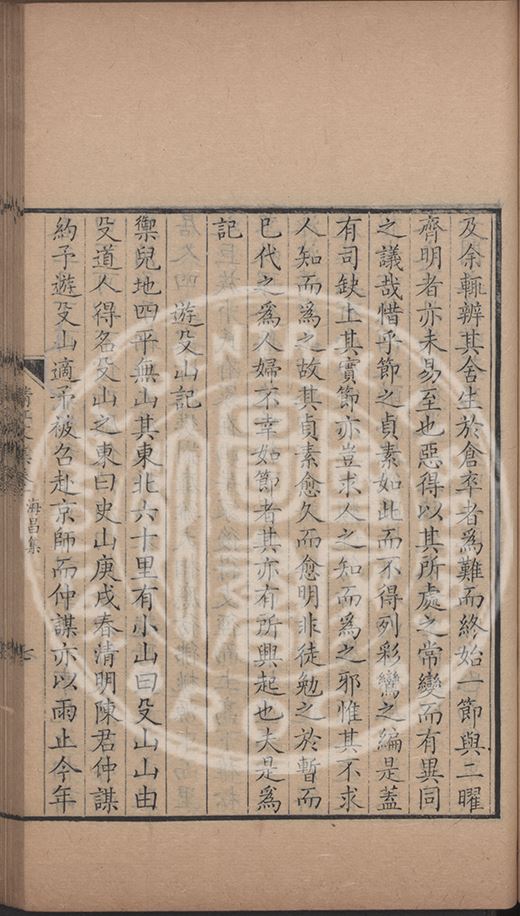 及余輒辨其舍生於倉卒者為難而終始一節與二曜
齊明者亦未易至也惡得以其所處之常變而有異同
之議哉惜乎節之貞素如此而不得列彩鸞之編是蓋
有司缺止其實節亦豈求人之知而為之邪惟其不求
人知而為之故其貞素愈久而愈明非徒勉之於暫而
已代之為人婦不幸如節者其亦有所興起也夫是為
記
遊殳山記
禦兒地四平無山其東北六十里有小山曰殳山山由
殳道人得名殳山之東曰史山庚戌春清明陳君仲謀
約予遊殳山適予被召赴京師而仲謀亦以雨止今年
海昌集
七